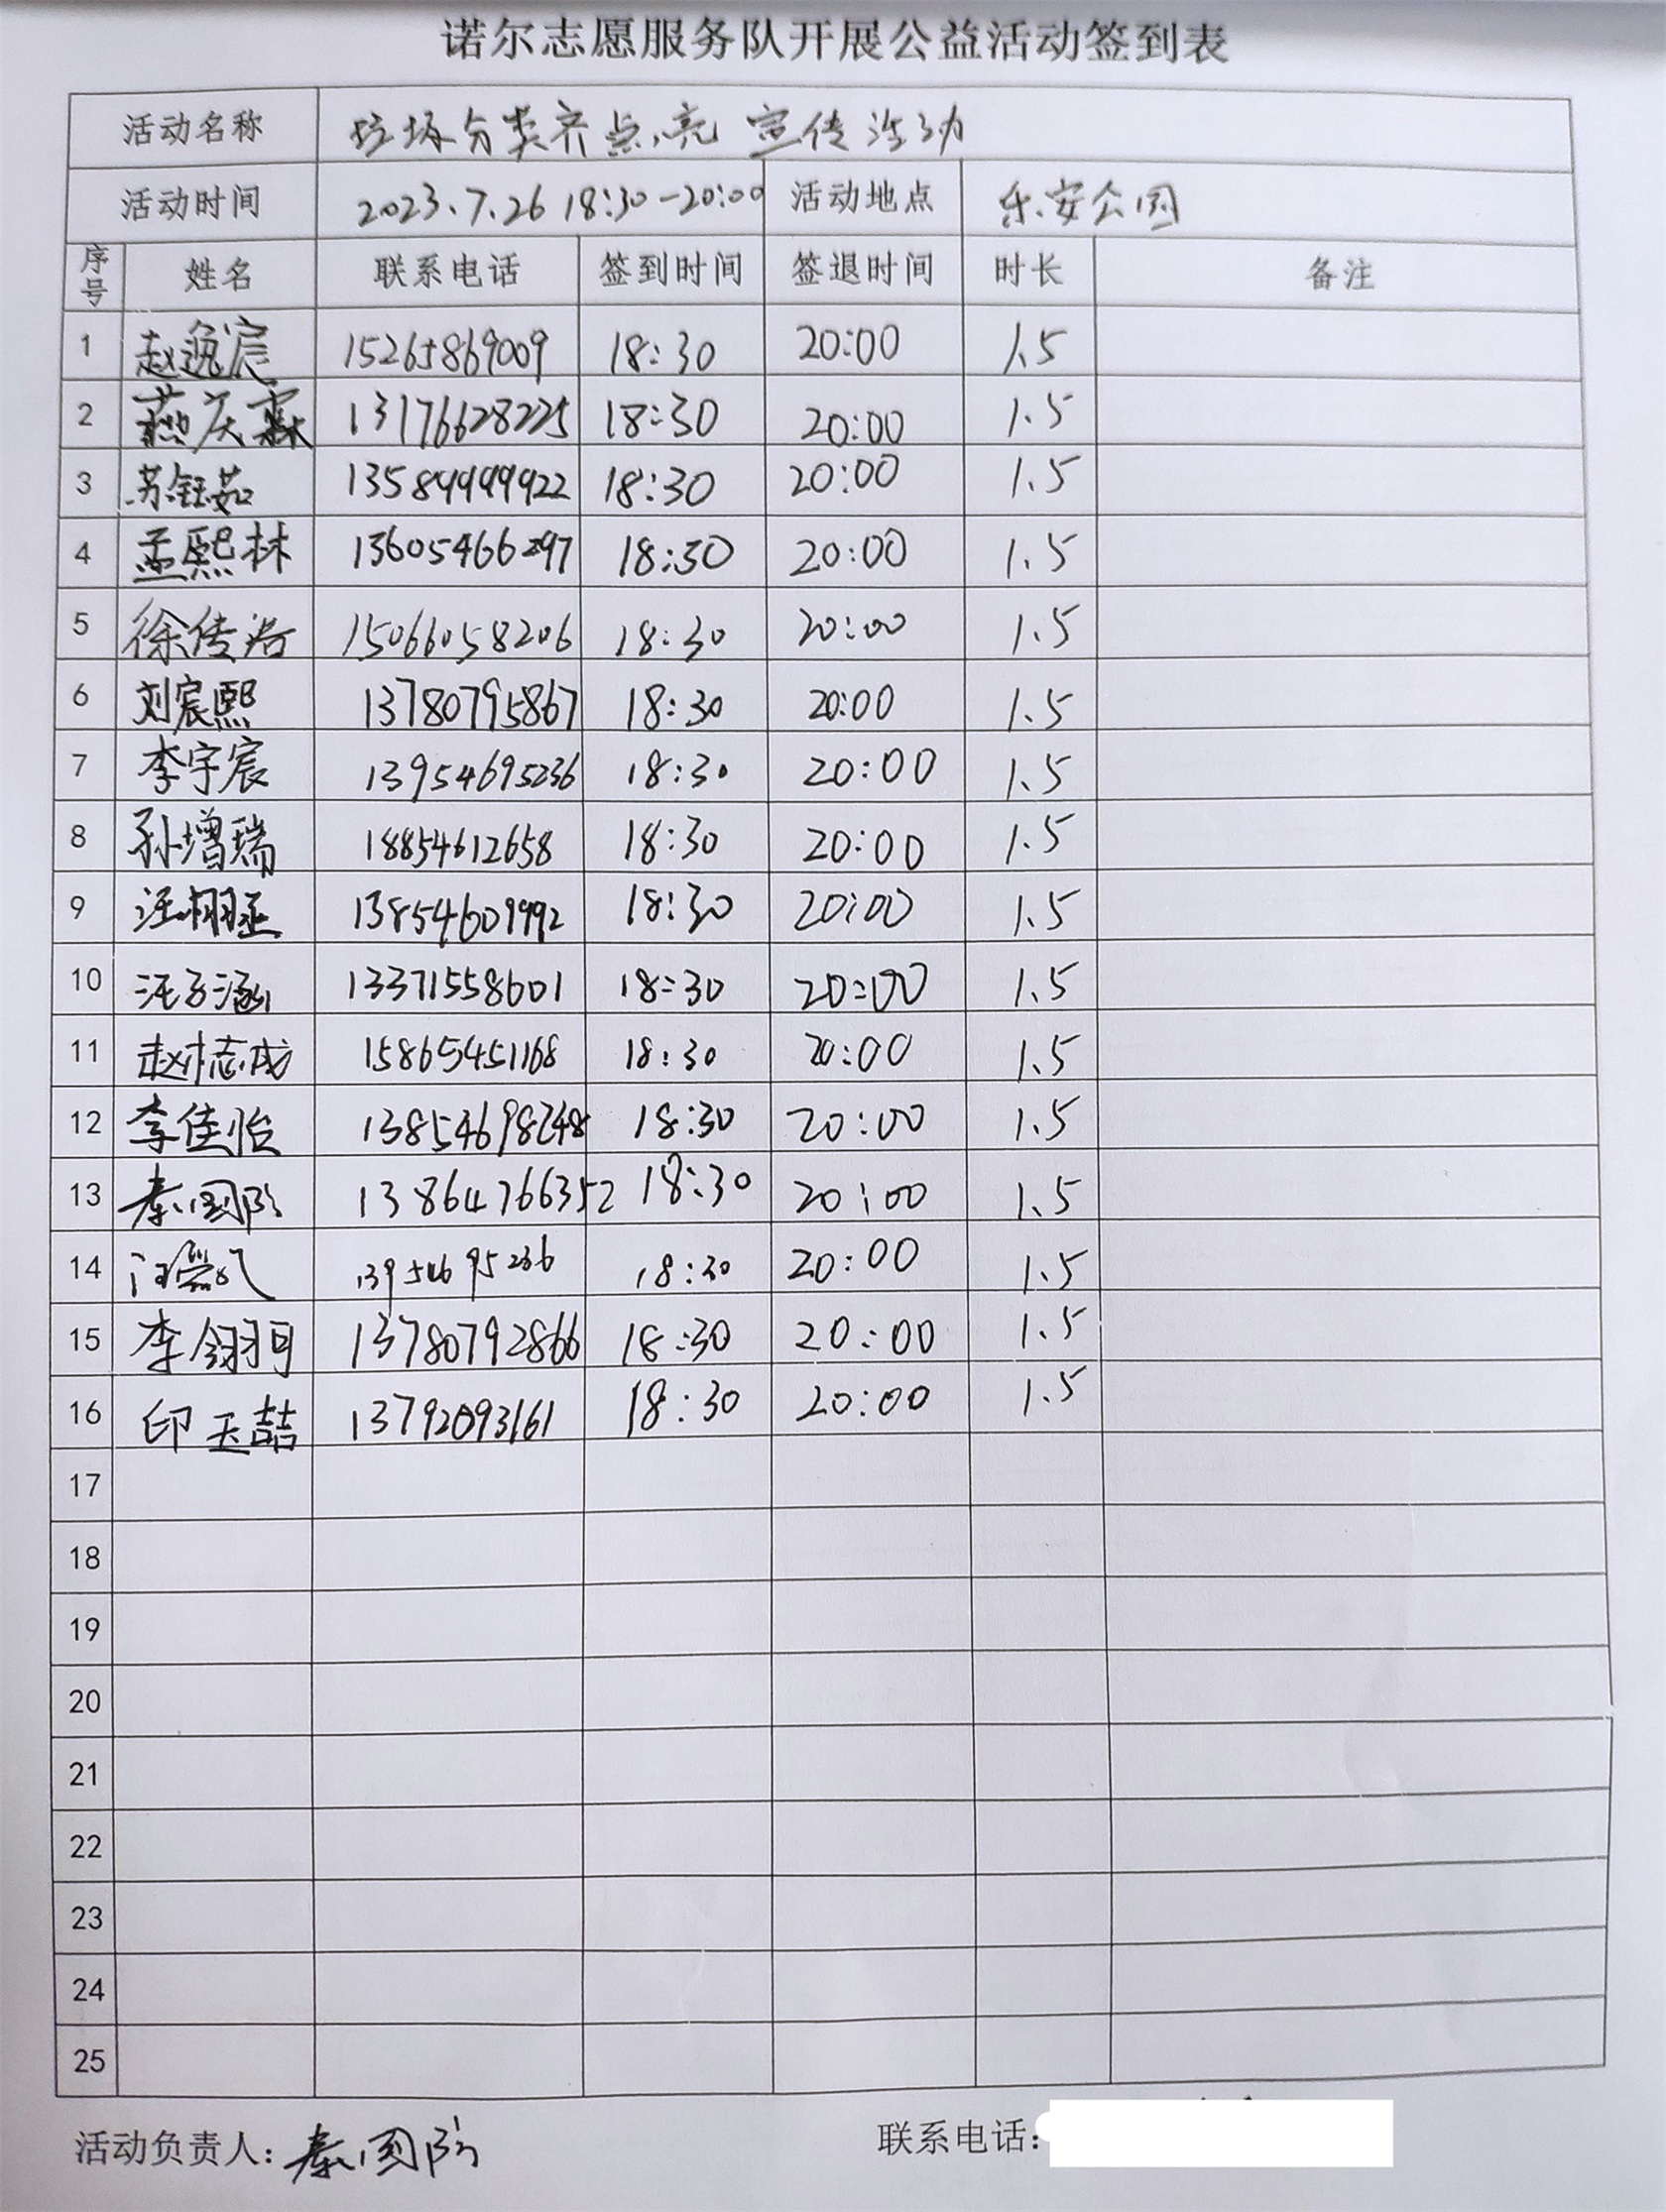 诺尔志愿服务队开展公益活动签到表
活动名称 垃圾分类齐点亮 宣传活动
活动时间 2023.7.26 18:30-20:00 活动地点 乐安公园
序号 姓名 联系电话 签到时间 签退时间 时长 备注
1 赵逸宸 15265869009 18:30 20:00 1.5
2 燕庆霖 13176628225 18:30 20:00 1.5
3 苏钰茹 18:30 20:00 1.5
4 孟熙林 13605466297 18:30 20:00 1.5
5 徐传浩 15066058206 18:30 20:00 1.5
6 刘宸熙 13780795867 18:30 20:00 1.5
7 李宇宸 13954695236 18:30 20:00 1.5
8 孙增瑞 18854612658 18:30 20:00 1.5
9 汪栩丞 13854609992 18:30 20:00 1.5
10 汪子涵 13371558601 18:30 20:00 1.5
11 赵志成 15865451168 18:30 20:00 1.5
12 李佳怡 13854698248 18:30 20:00 1.5
13 秦国防 13864766352 18:30 20:00 1.5
14 13954695236 18:30 20:00 1.5
15 李翎玥 13780792866 18:30 20:00 1.5
16 印玉喆 13792093161 18:30 20:00 1.5
17
18
19
20
21
22
23
24
25
活动负责人：秦国防 联系电话：